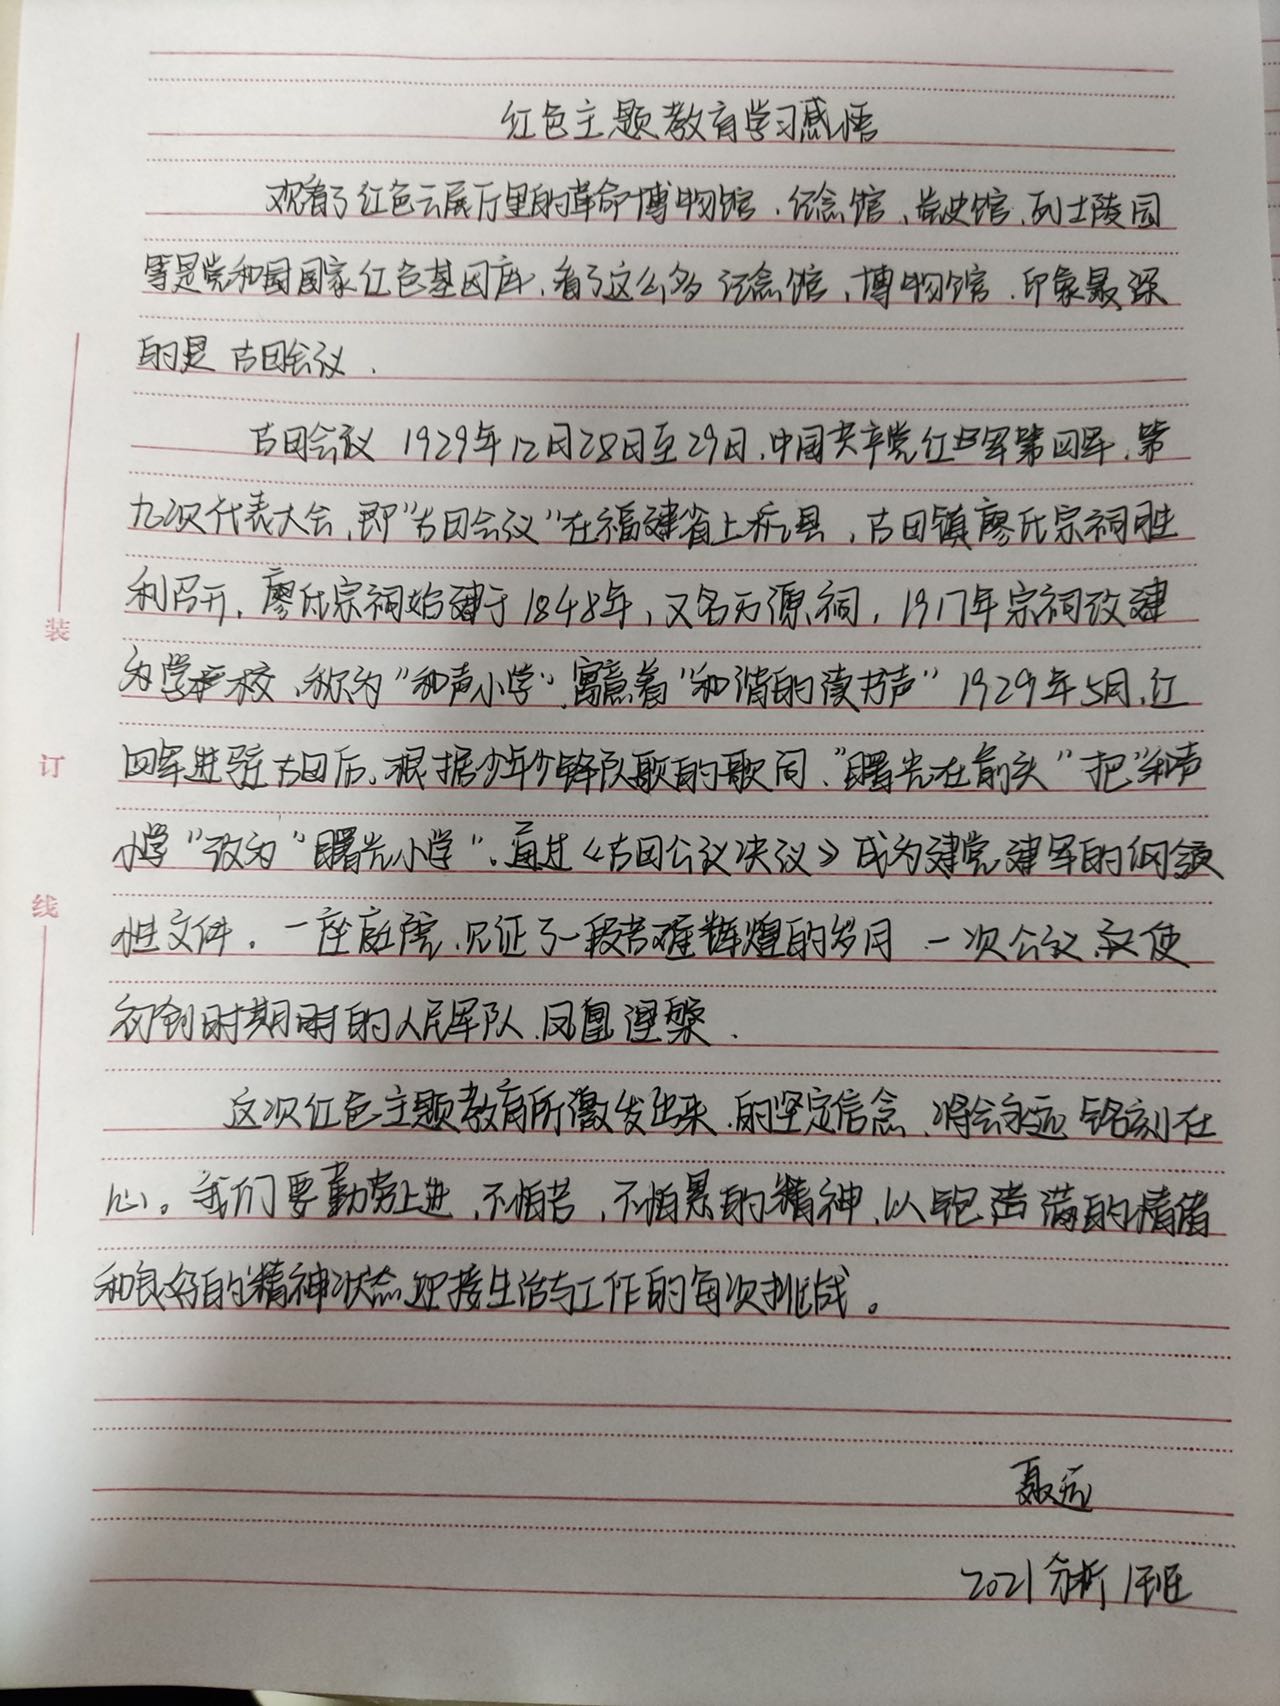 红色主题教育学习感悟
观看了红色云展厅里的革命博物馆、纪念馆、党史馆、烈士陵园
等是党和国家红色基因库，看了这么多纪念馆、博物馆，印象最深
的是古田会议．
古田会议 1929年12月28日至29日，中国共产党红四军第四军，第
九次代表大会，即"古田会议"在福建省上杭县，古田镇廖氏宗祠胜
利召开，廖氏宗祠始建于1848年，又名万源祠，1917年宗祠改建
为学校，称为"和声小学"，寓意着"和谐的读书声" 1929年5月，红
四军进驻古田后，根据少年少锋队歌的歌词，"曙光在前头"把"和声
小学"改为"曙光小学"，通过《古田会议决议》成为建党建军的纲领
性文件．一座庭院，见证了一段苦难辉煌的岁月 一次会议，又使
初创时期的人民军队，凤凰涅槃．
这次红色主题教育所激发出来，的坚定信念，将会永远铭刻在
心。我们要勤劳上进，不怕苦，不怕累的精神，以饱满的情绪
和良好的精神状态迎接生活与工作的每次挑战。
聂远
2021分析1班
装
订
线